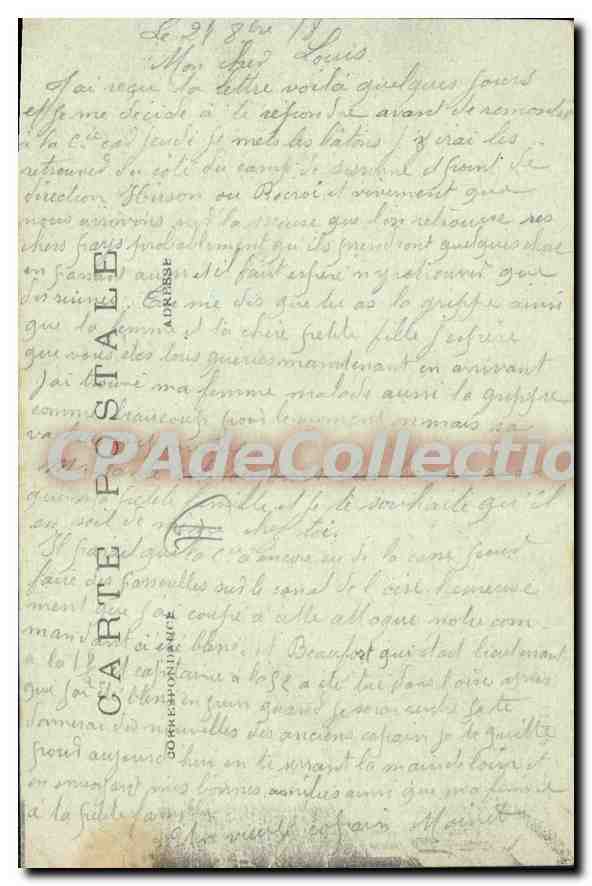 Le 21 8bre 18
Mon cher Louis
J'ai reçu ta lettre voilà quelques jours
et je me décide à te répondre avant de remonter
à la Cie car jeudi je mets les bâtons j'irai les
retrouver du coté du camp de sissonne et point de
direction Hirson ou Rocroi et vivement que
nous arrivons sur la meuse que l'on retrouve ses
chers pays probablement qu'ils prendront quelques choc
en passant aussi et il faut espéré n'y retrouver que
des ruines. Tu me dis que tu as la grippe ainsi
que ta femme et ta chère petite fille j'espère
que vous êtes tous guéries maintenant en arrivant
J'ai trouvé ma femme malade aussi la grippe
comme beaucoup pour le moment mais sa
va
petite famille et je te souhaite qu'il
en soit de même chez toi.
Il parait que la Cie a encore eu de la casse pour
faire des passerelles sur le canal de l'oise heureuse
ment que j'ai coupé a cette attaque notre com
mandant a été blessé et Beaufort qui était lieutenant
a la capitaine a la 52 a été tué dans l'oise après
que j'ai blessé en juin quand je serai rentré je te
donnerai des nouvelles des anciens copain je te quitte
pour aujourd'hui en te serrant la main de loin et
en envoyant mes bonnes amitiés ainsi que ma femme
à ta petite famille
Un vieux copain Moinet
CARTE POSTALE
CORRESPONDANCE
ADRESSE
CPAdeCollection